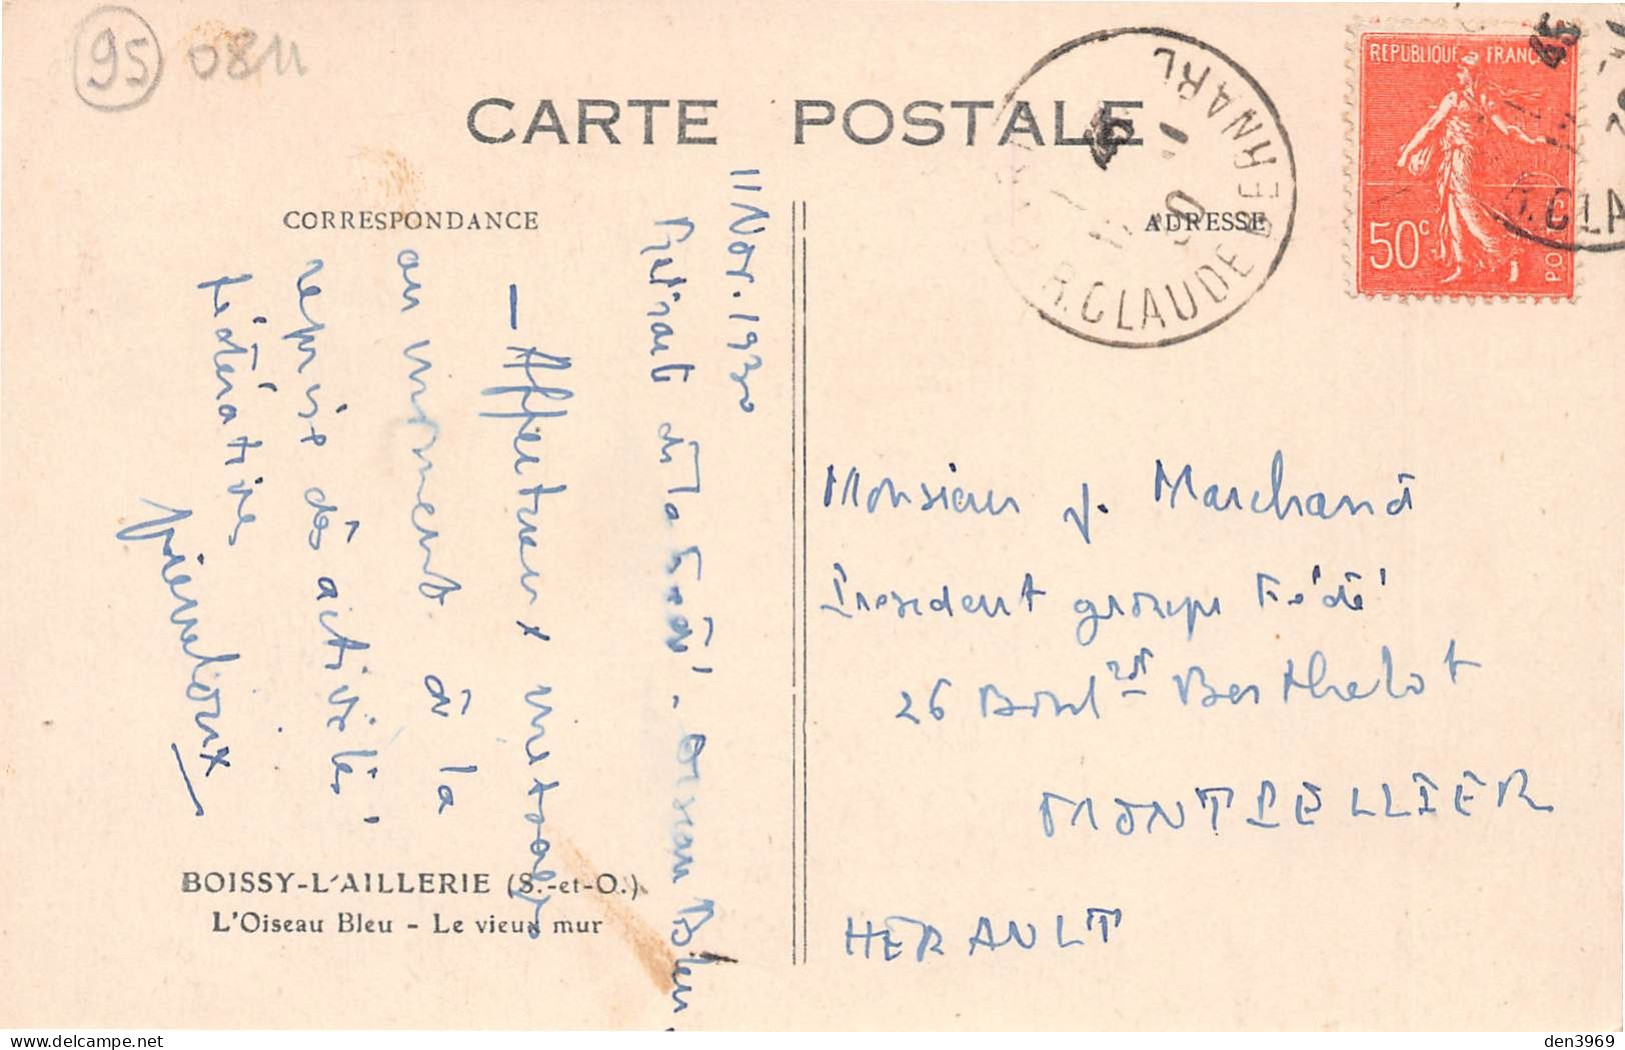 95 0811
CARTE POSTALE
CORRESPONDANCE
ADRESSE
REPUBLIQUE FRANÇ
50c
R. CLAUDE BERNARD
R. CLA
11 Nov. 1930
de la Fédé' - Oiseau Bleu
- Affectueux
au moment de la
reprise des activités
fédératives
Monsieur J. Marchand
President groupe Fédé'
26 Boul Berthelot
MONTPELLIER
HERAULT
BOISSY-L'AILLERIE (S.-et-O.)
L'Oiseau Bleu - Le vieux mur
den3969